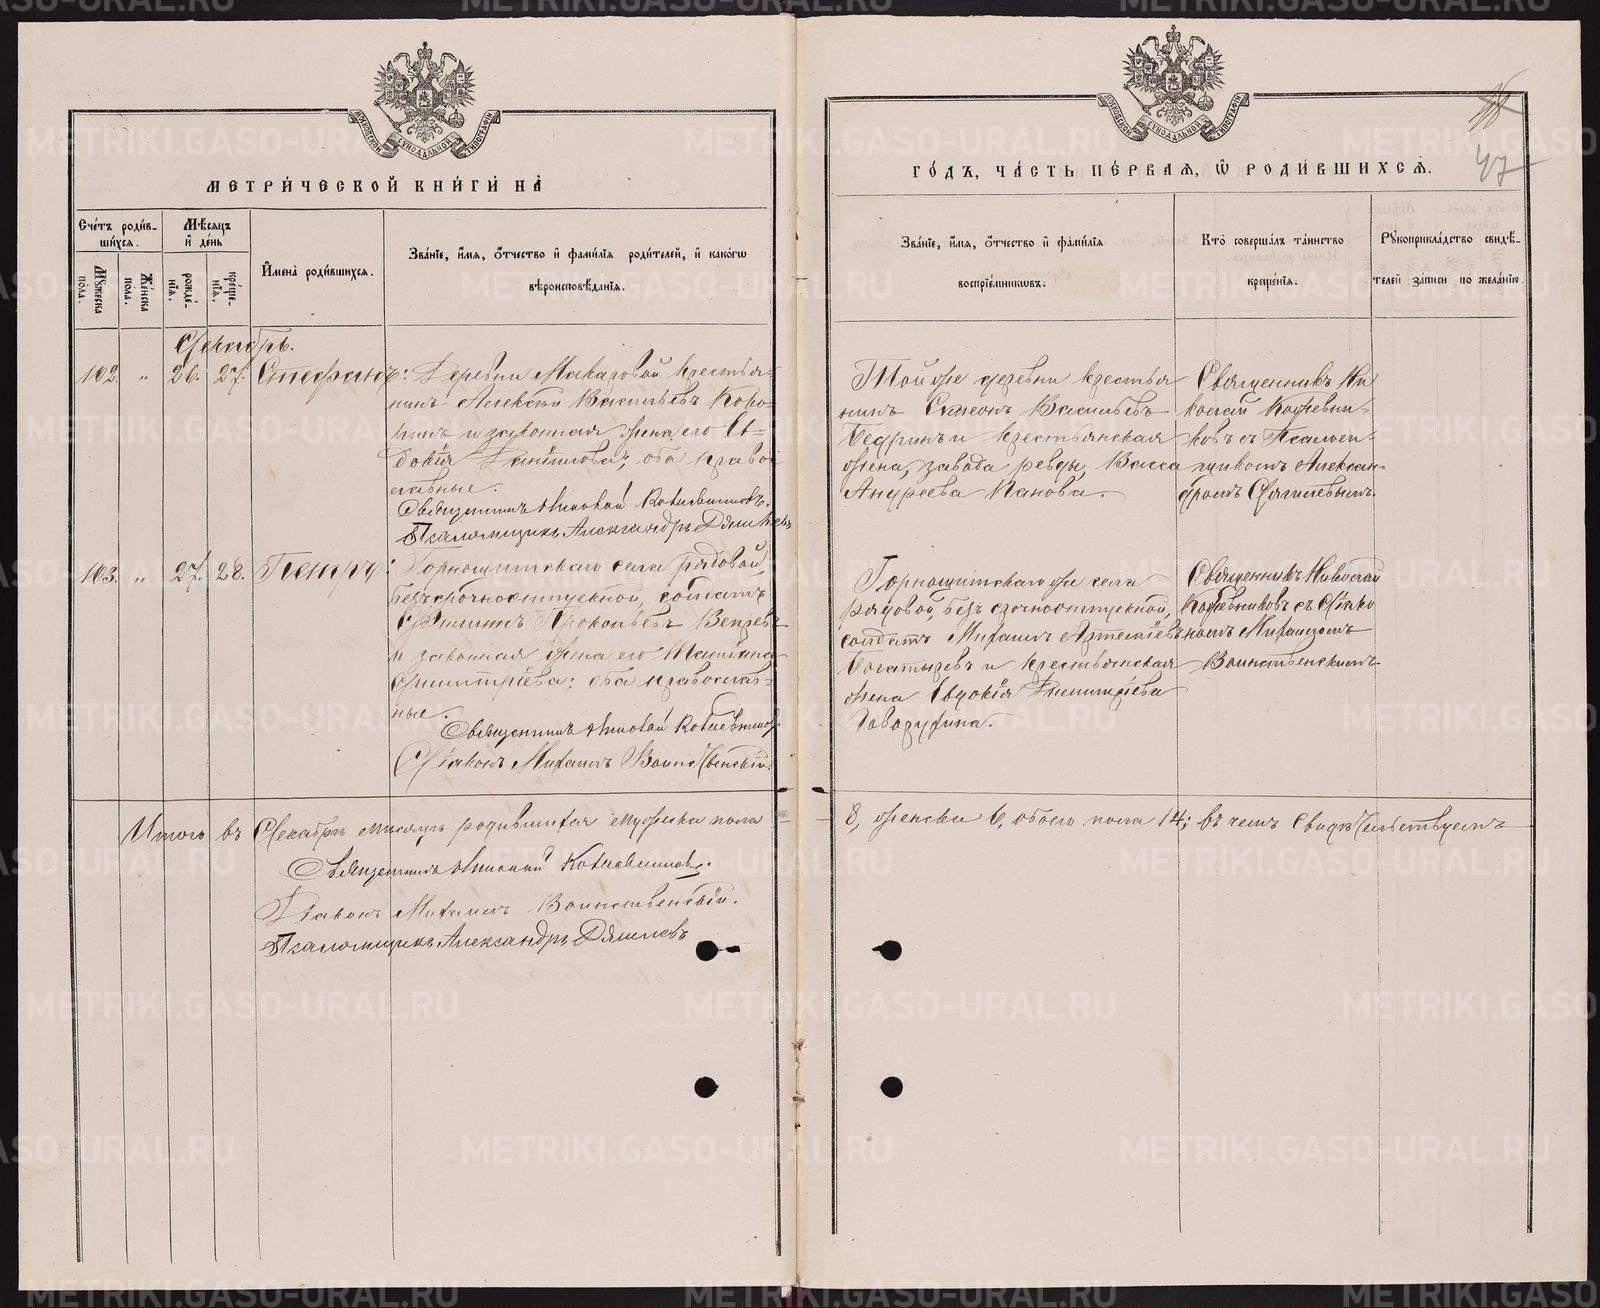 МЕТРИ́ЧЕСКОЙ КНИ́ГИ НА̀
Сче́тъ роди́в-
ши́хся.
Мѣ́сяцъ
и҆ де́нь
Мꙋ́жеска
по́ла.
Же́нска
по́ла.
рожде́-
нїѧ.
креще́-
нїѧ.
И҆мена̀ роди́вшихсѧ.
Зва́нїе, и҆́мѧ, ѻ҆́тчество и҆ фами́лїѧ роди́телей, и҆ како́гѡ
вѣроисповѣ́данїѧ.
Декабрь.
102. " 26. 27. Стефанъ:
Деревни Макаровой крестья-
нинъ Алексѣй Васильевъ Коро-
и законная жена его Ев-
докія Данилова; оба право-
славные.
Священникъ Николай Кожевниковъ.
Псаломщикъ Александръ Дягилевъ
103. " 27. 28. Петръ:
Горнощитскаго села рядовой,
безсрочноотпускной, солдатъ
Прокопьевъ Вепревъ
и законная жена его Татіана
Димитріева; оба православ-
ные.
Священникъ Николай Кожевниковъ.
Діаконъ Михаилъ Воинственскій.
Итого въ Декабрѣ мѣсяцѣ родившихся мужеска пола –
Священникъ Николай Кожевниковъ.
Діаконъ Михаилъ Воинственскій.
Псаломщикъ Александръ Дягилевъ
ГО́ДЪ, ЧА́СТЬ ПЕ́РВАѦ, Ѡ҆ РОДИ́ВШИХСѦ.
47
Зва́нїе, и҆́мѧ, ѻ҆́тчество и҆ фами́лїѧ
воспрїе́мникѡвъ.
Кто̀ соверша́лъ та́инство
креще́нїѧ.
Рꙋкоприкла́дство свидѣ́-
телей за́писи по жела́нїю.
Той же деревни крестья-
нинъ Симеонъ Васильевъ
Бедринъ и крестьянская
жена, завода Ревды, Васса
Андреева Панова.
Священникъ Ни-
колай Кожевни-
ковъ съ Псалом-
щикомъ Алексан-
дромъ Дягилевымъ.
Горнощитскаго же села
рядовой, безсрочноотпускной,
солдатъ Михаилъ Артеміевъ
Богатыревъ и крестьянская
жена Евдокія Димитріева
Говорухина.
Священникъ Николай
Кожевниковъ съ Діако-
номъ Михаиломъ
Воинственскимъ
– 8, женска 6, обоего пола 14; въ чемъ свидѣтельствуемъ